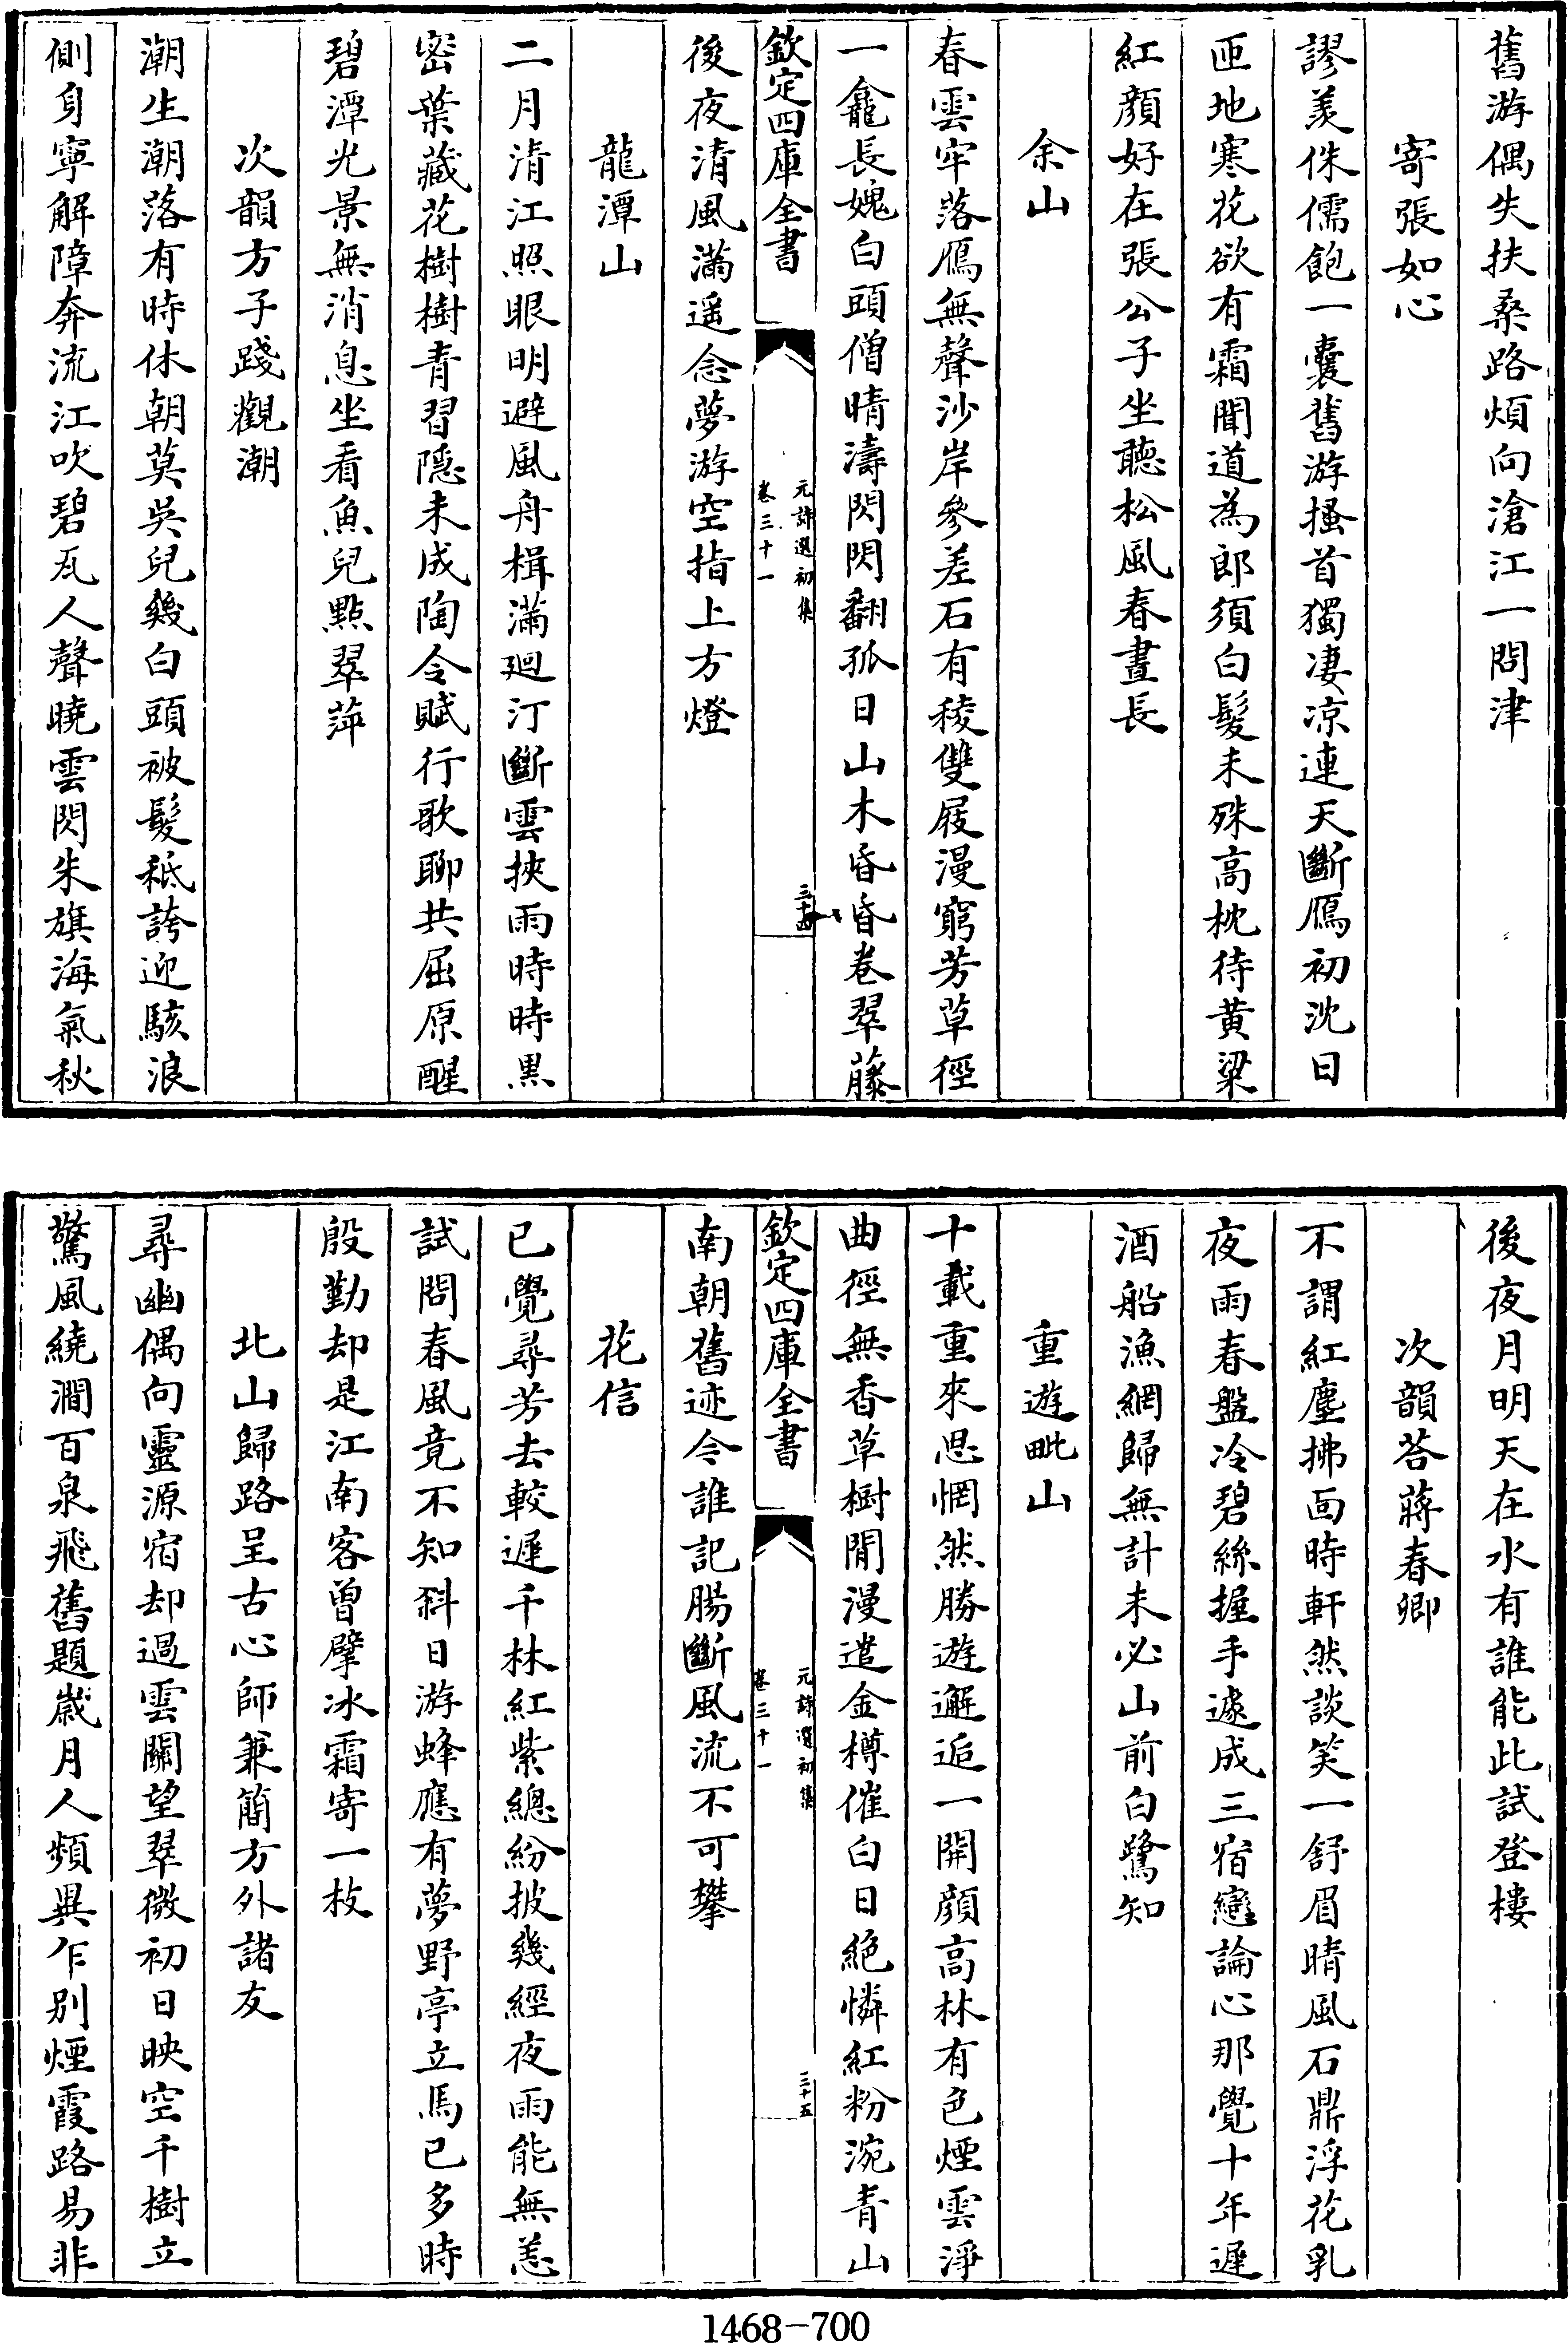 舊游偶失扶桑路煩向滄江一問津
寄張如心
謬羨侏儒飽一囊舊游搔首獨凄凉連天斷鴈初沈日
匝地寒花欲有霜聞道為郎須白髮未殊高枕待黃粱
紅顏好在張公子坐聽松風春晝長
余山
春雲牢落鴈無聲沙岸參差石有稜雙屐漫窮芳草徑
一龕長媿白頭僧晴濤閃閃翻孤日山木昏昏卷翠藤
欽定四庫全書
元詩選初集
卷三十一
三十四
後夜清風滿遥念夢游空指上方燈
龍潭山
二月清江照眼明避風舟楫滿迴汀斷雲挾雨時時黑
密葉藏花樹樹青習隱未成陶令賦行歌聊共屈原醒
碧潭光景無消息坐看魚兒點翠萍
次韻方子踐觀潮
潮生潮落有時休朝莫吳兒幾白頭被髮秖誇迎駭浪
側身寧解障奔流江吹碧瓦人聲曉雲閃朱旗海氣秋
後夜月明天在水有誰能此試登樓
次韻荅蔣春卿
不謂紅塵拂面時軒然談笑一舒眉晴風石鼎浮花乳
夜雨春盤冷碧絲握手遽成三宿戀論心那覺十年遲
酒船漁網歸無計未必山前白鷺知
重遊毗山
十載重來思惘然勝遊邂逅一開顏高林有色煙雲淨
曲徑無香草樹閒漫遣金樽催白日絕憐紅粉涴青山
欽定四庫全書
元詩選初集
卷三十一
三十五
南朝舊迹今誰記腸斷風流不可攀
花信
已覺尋芳去較遲千林紅紫總紛披幾經夜雨能無恙
試問春風竟不知斜日游蜂應有夢野亭立馬已多時
殷勤却是江南客曾擘冰霜寄一枝
北山歸路呈古心師兼簡方外諸友
尋幽偶向靈源宿却過雲關望翠微初日映空千樹立
驚風繞澗百泉飛舊題歲月人頻異乍别煙霞路易非
1468-700